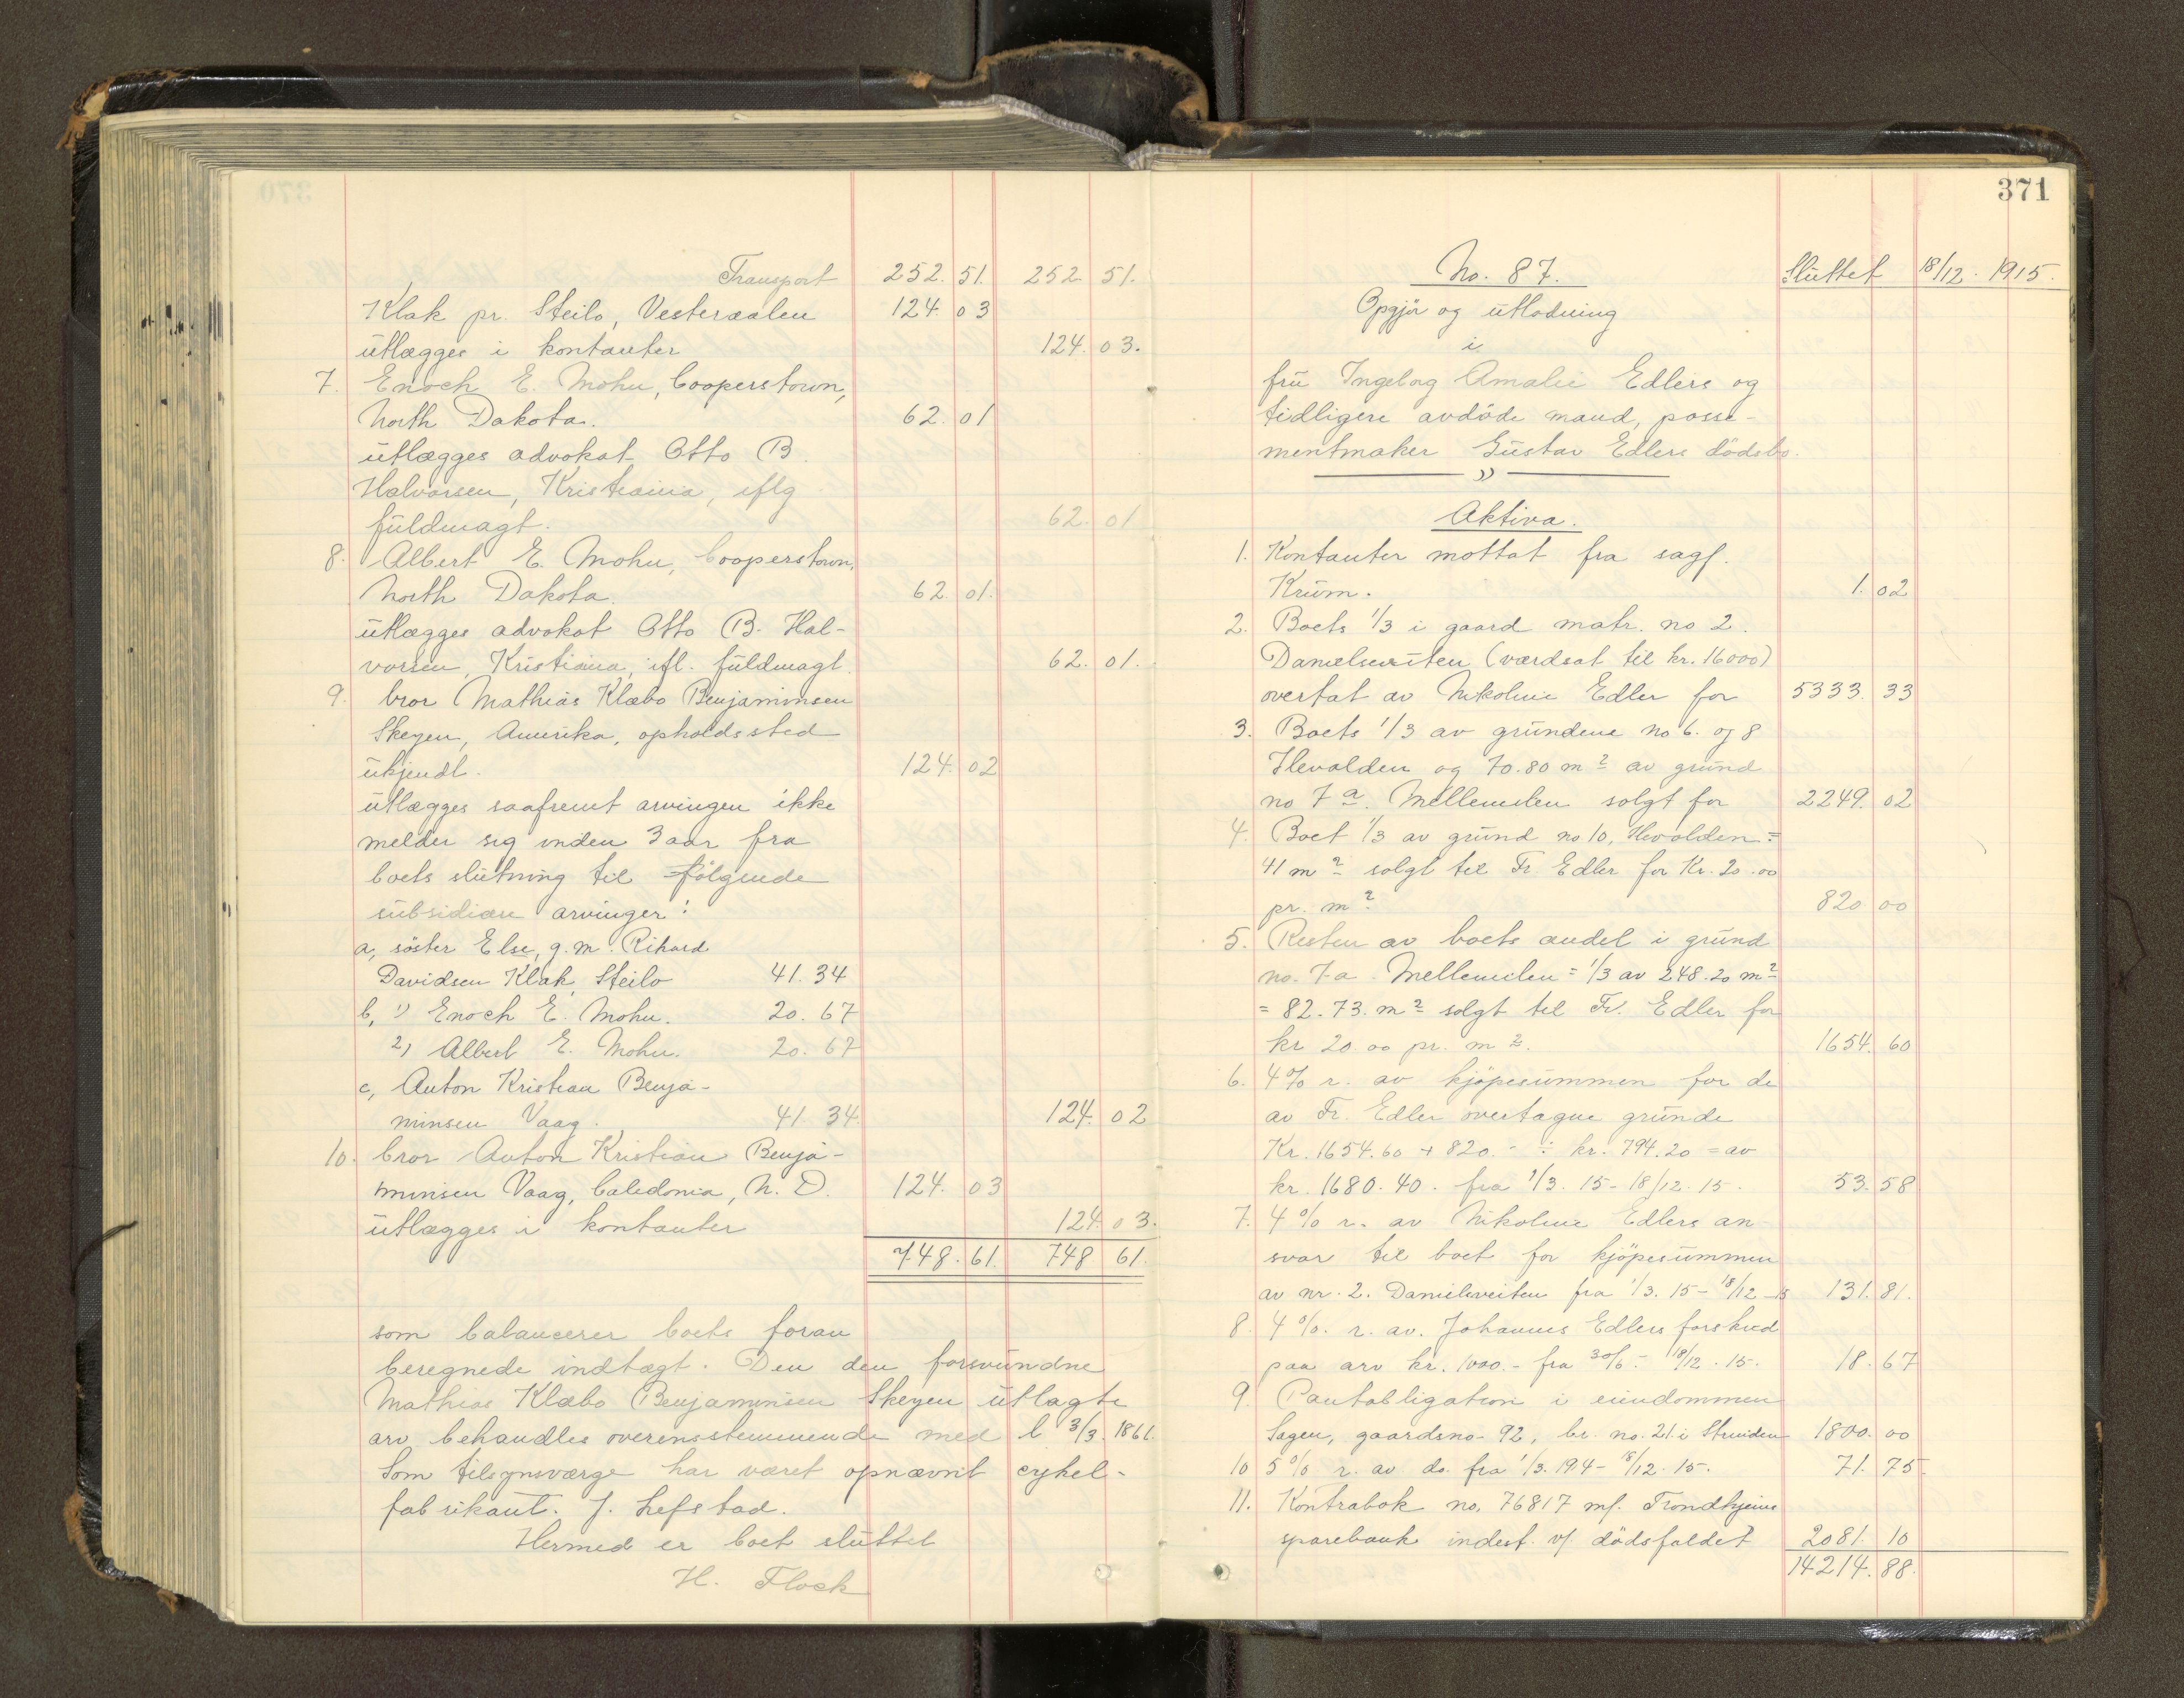 Transport 252. 51. 252 51.
Klak pr. Steilo, Vesteraalen 124. 03
utlægges i kontanter 124. 03.
7. Enoch E. Mohn, Cooperstown,
North Dakota. 62. 01
utlægges advokat Otto B.
Halvorsen, Kristiania, iflg
fuldmagt. 62. 01
8. Albert E. Mohn, Cooperstown,
North Dakota. 62. 01.
utlægges advokat Otto B. Hal-
vorsen, Kristiania, ifl. fuldmagt. 62. 01.
9. bror Mathias Klæbo Benjaminsen
Skeyen, Amerika, opholdssted
ukjendt. 124. 02
utlægges saafremt arvingen ikke
melder sig inden 3 aar fra
boets slutning til følgende
subsidiære arvinger:
a, søster Else, g. m. Rihard
Davidsen Klak, Steilo 41. 34
b, 1) Enoch E. Mohn. 20. 67
2) Albert E. Mohn. 20. 67
c, Anton Kristian Benja-
minsen Vaag. 41. 34. 124. 02
10. bror Anton Kristian Benja-
minsen Vaag, Caledonia, N. D. 124. 03
utlægges i kontanter 124. 03.
748. 61. 748 61.
som balancerer boets foran
beregnede indtægt. Den den forsvundne
Mathias Klæbo Benjaminsen Skeyen utlagte
arv behandles overensstemmende med l 3/3. 1861.
Som tilsynsværge har været opnævnt cykel-
fabrikant. J. Lefstad.
Hermed er boet sluttet
H. Flock
371
No. 87. Sluttet 18/12. 1915.
Opgjør og utlodning
i
fru Ingeborg Amalie Edlers og
tidligere avdøde mand, posse-
mentmaker Gustav Edlers dødsbo.
Aktiva.
1. Kontanter mottat fra sagf.
Krum. 1. 02
2. Boets 1/3 i gaard matr. no 2.
Danielsveiten (værdsat til kr. 16000)
overtat av Nikoline Edler for 5333. 33
3. Boets 1/3 av grundene no 6. og 8
Ilevolden og 70.80 m2 av grund
no 7 a. Mellemilen solgt for 2249. 02
4. Boet 1/3 av grund no 10, Ilevolden =
41 m2 solgt til Fr. Edler for Kr. 20.00
pr. m2 820 00
5. Resten av boets andel i grund
no. 7-a. Mellemilen = 1/3 av 248.20 m2
= 82.73. m2 solgt til Fr. Edler for
kr 20 00 pr. m2. 1654. 60
6. 4% r. av kjøpesummen for de
av Fr. Edler overtagne grunde
Kr. 1654.60 + 820.- ÷ kr. 794.20 = av
kr. 1680.40. fra 1/3. 15 - 18/12. 15. 53. 58
7. 4% r. av Nikoline Edlers an-
svar til boet for kjøpesummen
av nr. 2. Danielsveiten fra 1/3. 15 - 18/12 - 15 131. 81.
8. 4%. r. av. Johannes Edlers forskud
paa arv kr. 1000.- fra 30/6 - 18/12. 15. 18. 67
9. Pantobligation i eiendommen
Sagen, gaardsno- 92, br. no. 21 i Strinden 1800. 00
10 5% r. av do. fra 1/3. 1914 - 18/12. 15. 71. 75.
11. Kontrabok no. 76817 mf. Trondhjems
sparebank indest. v/ dødsfaldet 2081. 10
14214. 88.